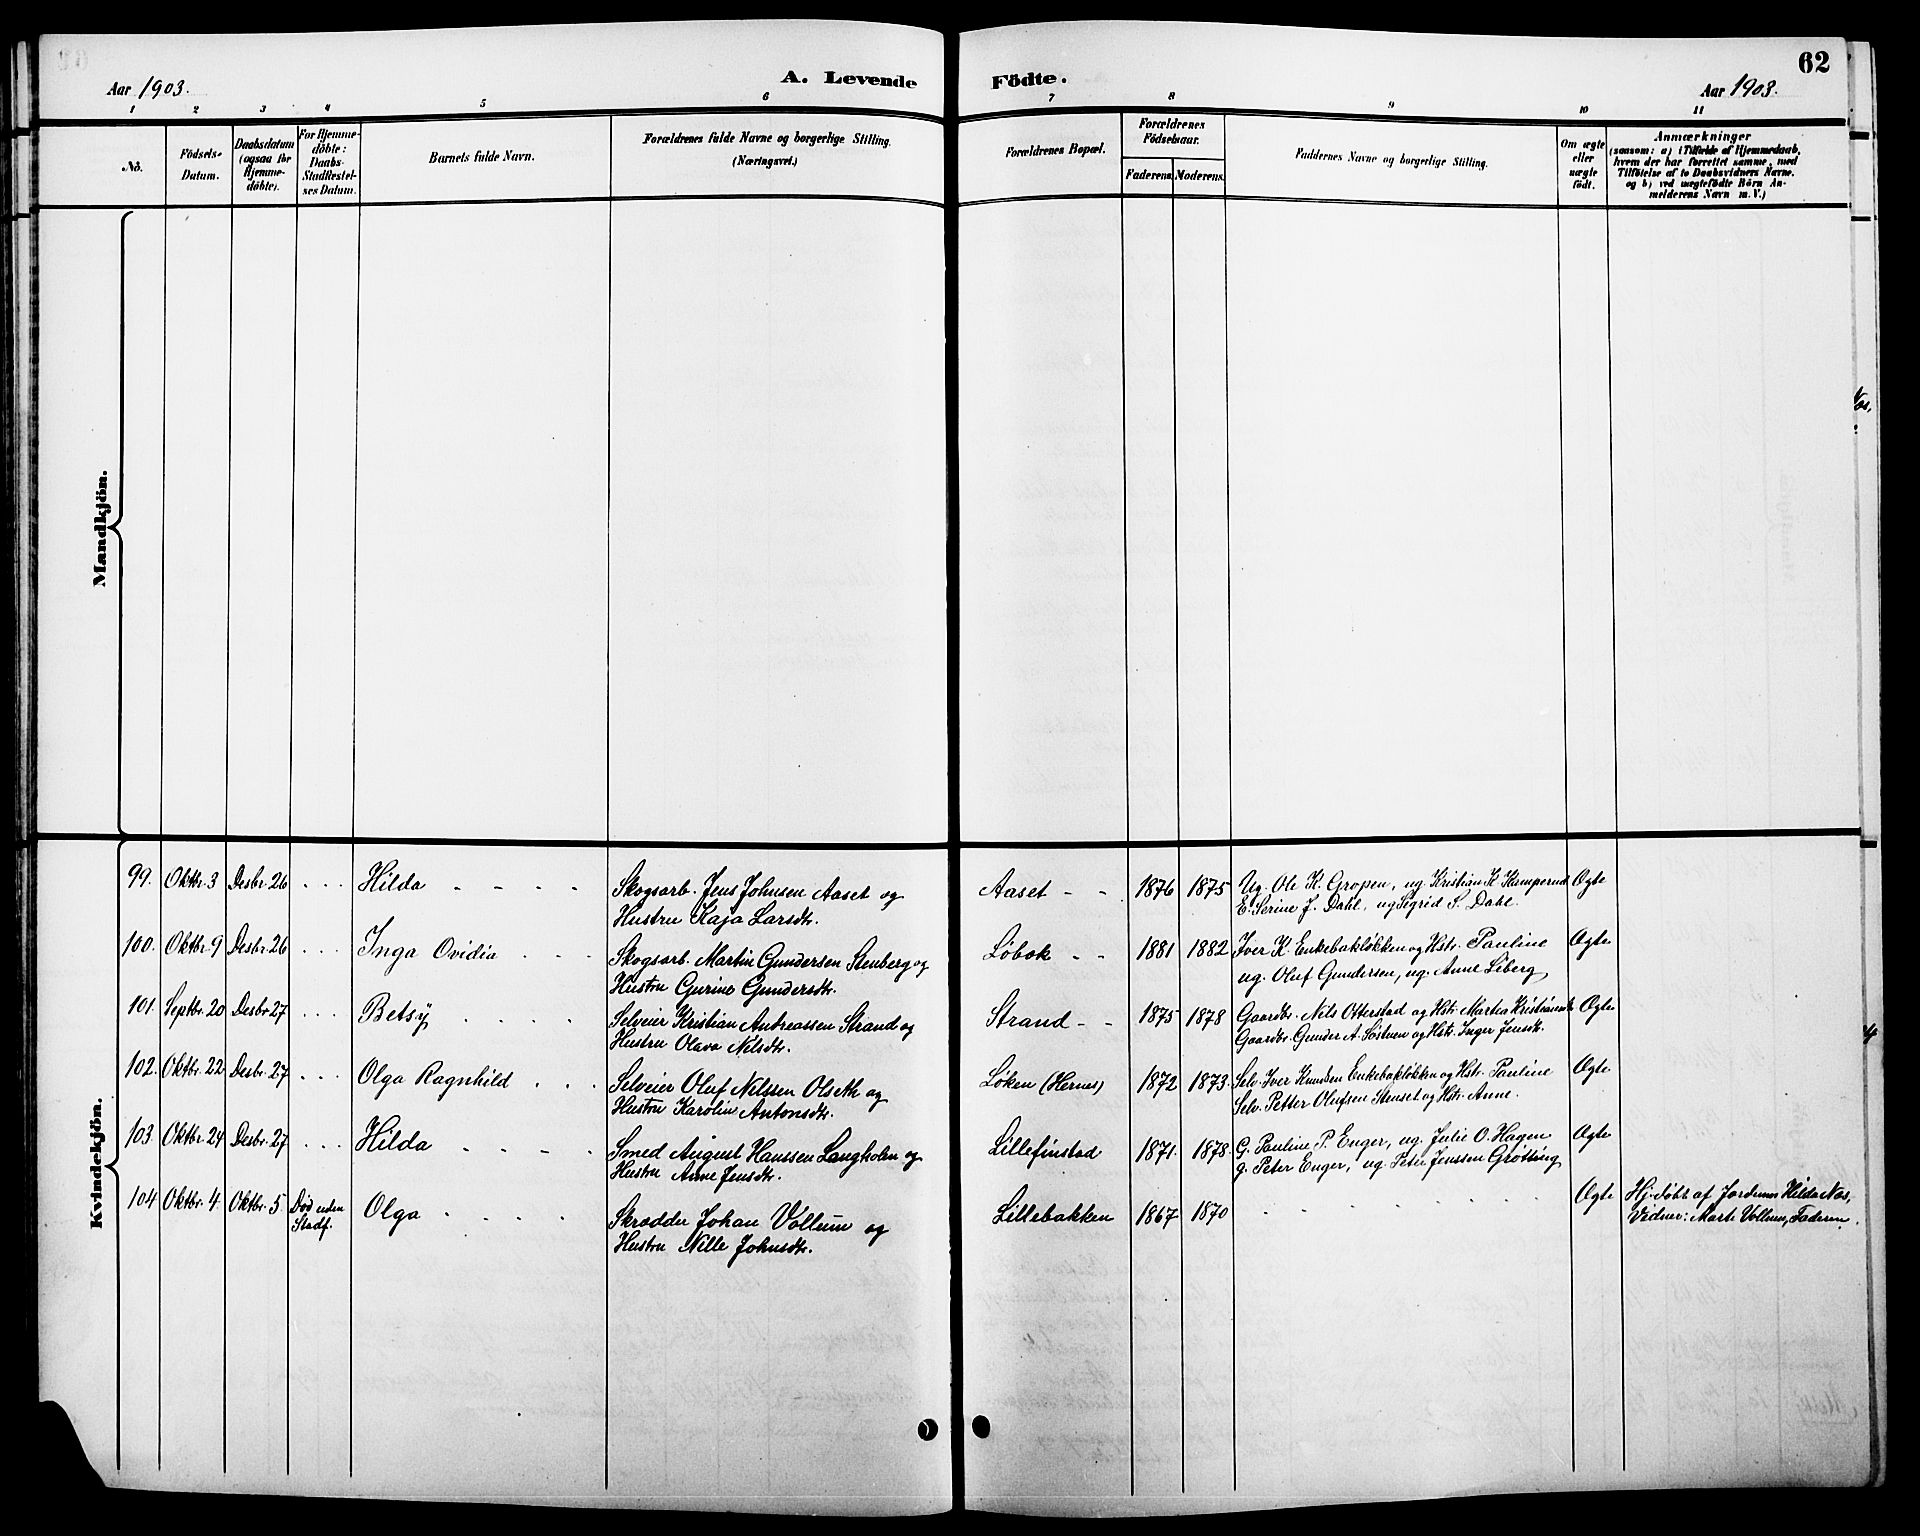 Aar 1903.
A. Levende Födte.
62
Aar 1903.
1 2 3 4 5 6 7 8 9 10 11
No.
Födsels-
Datum.
Daabsdatum
(ogsaa for
Hjemme-
döbte).
For Hjemme-
döbte:
Daabs-
Stadfestel-
ses Datum.
Barnets fulde Navn.
Forældrenes fulde Navne og borgerlige Stilling.
(Næringsvei.)
Forældrenes Bopæl.
Forældrenes
Födselsaar.
Faderens.
Moderens.
Faddernes Navne og borgerlige Stilling.
Om ægte
eller
uægte
født.
Anmærkninger
(saasom: a) i Tilfælde af Hjemmedaab,
hvem der har forrettet samme, med
Tilföielse af to Daabsvidners Navne.
og b) ved uægtefödte Börn An-
melderens Navn m. V.)
Mandkjön.
Kvindekjön.
99. Oktbr. 3 Desbr. 26 . . . Hilda - - - -
Skogsarb. Jens Johnsen Aaset og
Hustru Kaja Larsdtr.
Aaset - - 1876 1875
Ug. Ole K. Gropen, ug. Kristian K. Kamperud
E. Serine J. Dahl, ug Sigrid S. Dahl.
Ægte
100. Oktbr. 9 Desbr. 26 . . . Inga Ovidia . . .
Skogsarb. Martin Gundersen Stenberg og
Hustru Gurine Gundersdtr.
Løbak - - 1881 1882
Iver K. Enkebakløkken og Hstr. Pauline
ug. Oluf Gundersen, ug. Anne Liberg
Ægte
101. Septbr. 20 Desbr. 27 . . . Betsy . . . .
Selveier Kristian Andreassen Strand og
Hustru Olava Nilsdtr.
Strand - - 1875 1878
Gaardbr. Nils Otterstad og Hstr. Martea Kristiansdtr
Gaardbr. Gunder A. Søstuen og Hstr. Inger Jensdtr.
Ægte
102. Oktbr. 22 Desbr. 27 . . . Olga Ragnhild . . .
Selveier Oluf Nilssen Olseth og
Hustru Karolin Antonsdtr.
Løken (Hernes) 1872 1873.
Selv. Iver Knudsen Enkebakløkken og Hstr. Pauline
Selv. Petter Olufsen Stenset og Hstr. Anne.
Ægte
103. Oktbr. 24 Desbr. 27 . . . Hilda - - - -
Smed August Hanssen Langholen og
Hustru Anne Jensdtr.
Lillefinstad 1871. 1878.
G. Pauline P. Enger, ug. Julie O. Hagen
g. Peter Enger, ug. Peter Jenssen Grøtting
Ægte
104 Oktbr. 4. Oktbr. 5. Død uden
Stadf.
Olga . . . .
Skrædder Johan Vollum og
Hustru Nille Johnsdtr.
Lillebakken 1867 1870
Ægte
Hj. døbt af Jordemor Hilda Nas,
Vidner: Marte Vollum, Faderen.